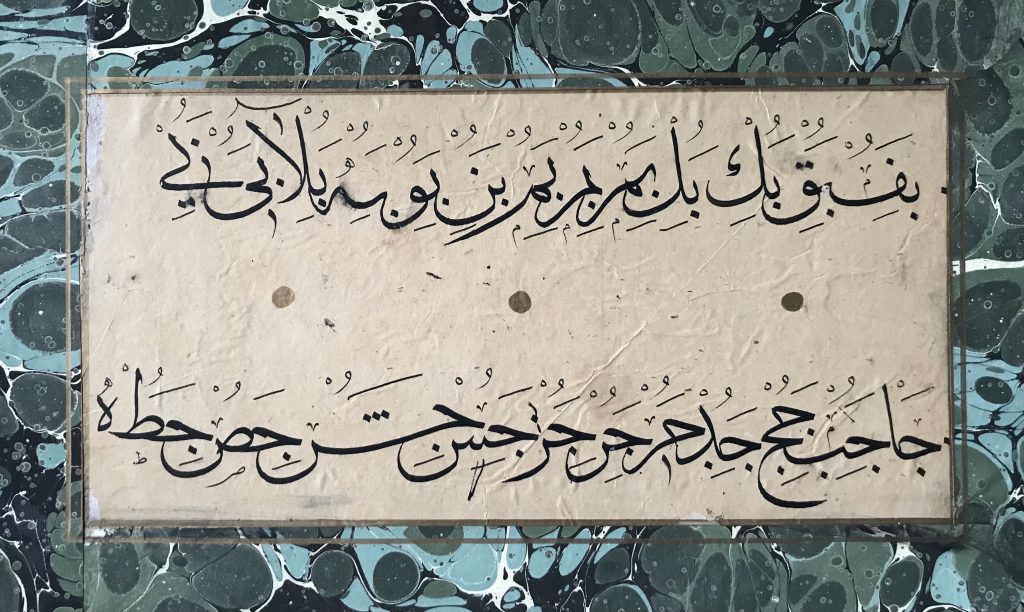 بف بق بك بل بم بم بم بن بو به بلا بى بي
جا جب جج جد جر جر جر جس جش جص جط